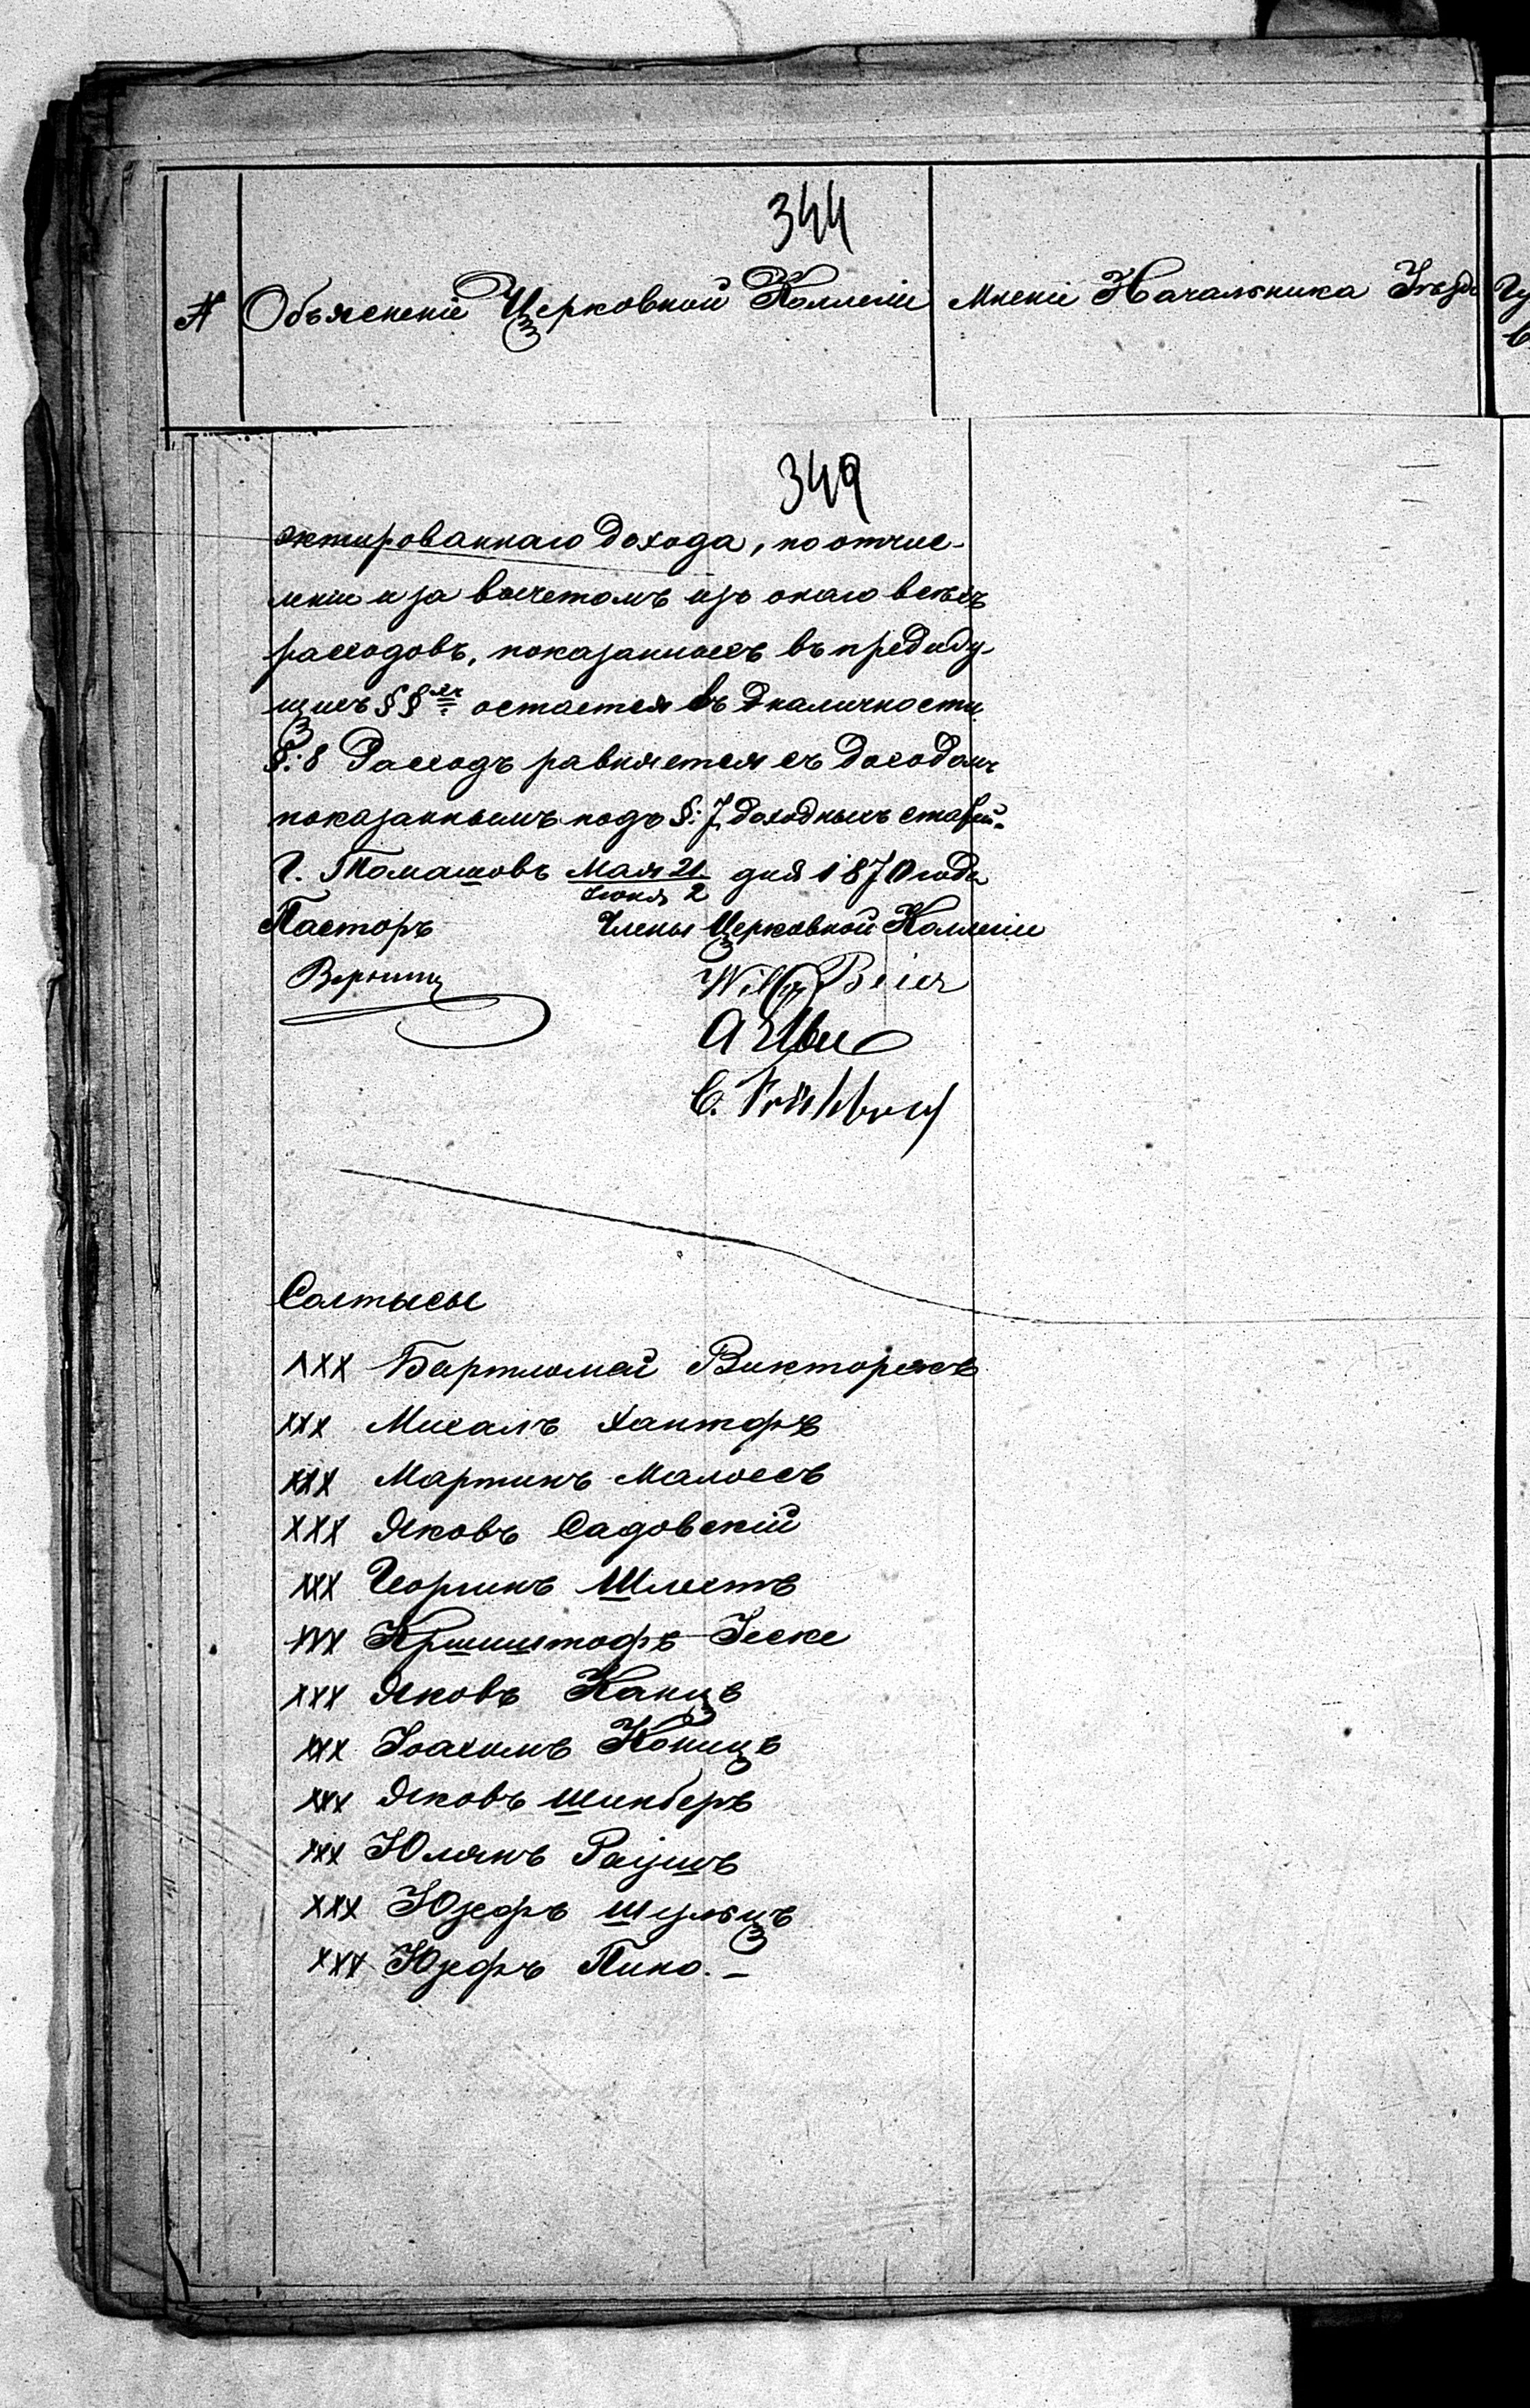 344
№ Объясненіе Церковной Коллегіи Мненіе Начальника Уѣзда
349
эктированнаго дохода, по отчис-
леніи и за вычетомъ изъ онаго всѣхъ
расходовъ, показанныхъ въ предиду-
щихъ §§ хъ остается въ наличности
§: 8 Расходъ равняется съ доходомъ
показаннымъ подъ §: 7, доходныхъ статей.
Г. Томашовъ Мая 21 / Іюня 2 дня 1870 года
Пасторъ Члены Церковной Коллегіи
Wilh. Beier
C.
Солтысы
XXX Бартломей Викторякъ
XXX Михалъ Хантфъ
XXX Мартинъ
XXX Яковъ Садовскій
XXX Шлехтъ
XXX Кршиштофъ Іеске
XXX Яковъ Канцъ
XXX Іоахимъ Коницъ
XXX Яковъ Шинберъ
XXX Юлянъ Раушъ
XXX Юзефъ Шульцъ
XXX Юзефъ Пино. –